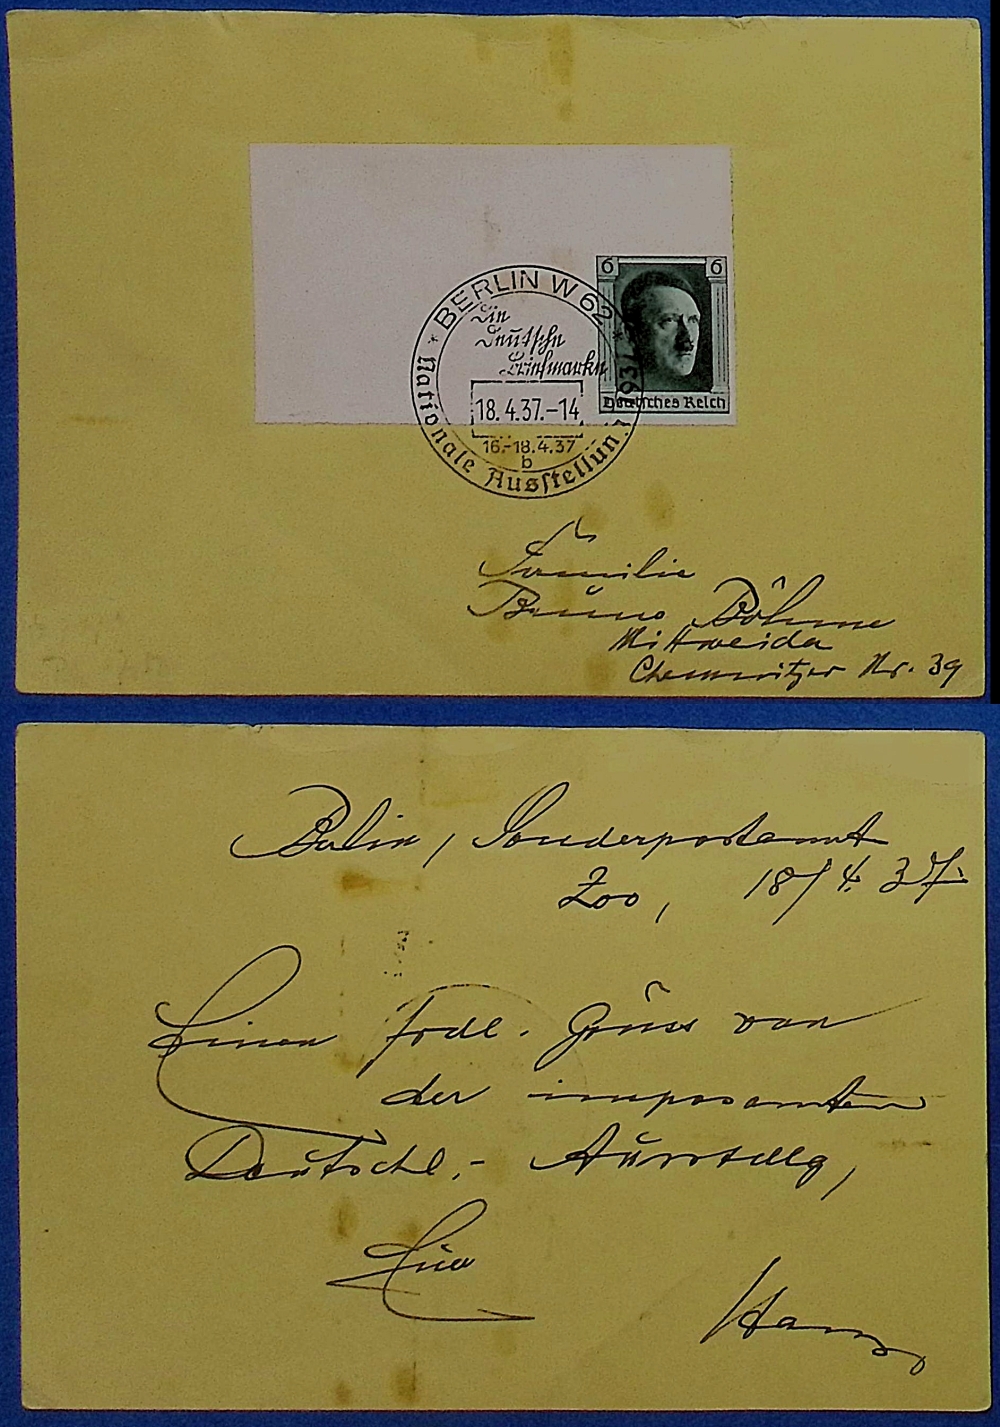 6 6
Deutsches Reich
* BERLIN W 62 *
Die
Deutsche
Briefmarke
18.4.37.-14
16.-18.4.37
b
Nationale Ausstellung 1937
Familie
Bruno Böhme
Mittweida
Chemnitzer Nr. 39
Berlin, Sonderpostamt
Zoo, 18/4. 37.
Einen frdl. Gruss von
der imposanten
Deutschl.- Ausstellg,
Euer
Hans